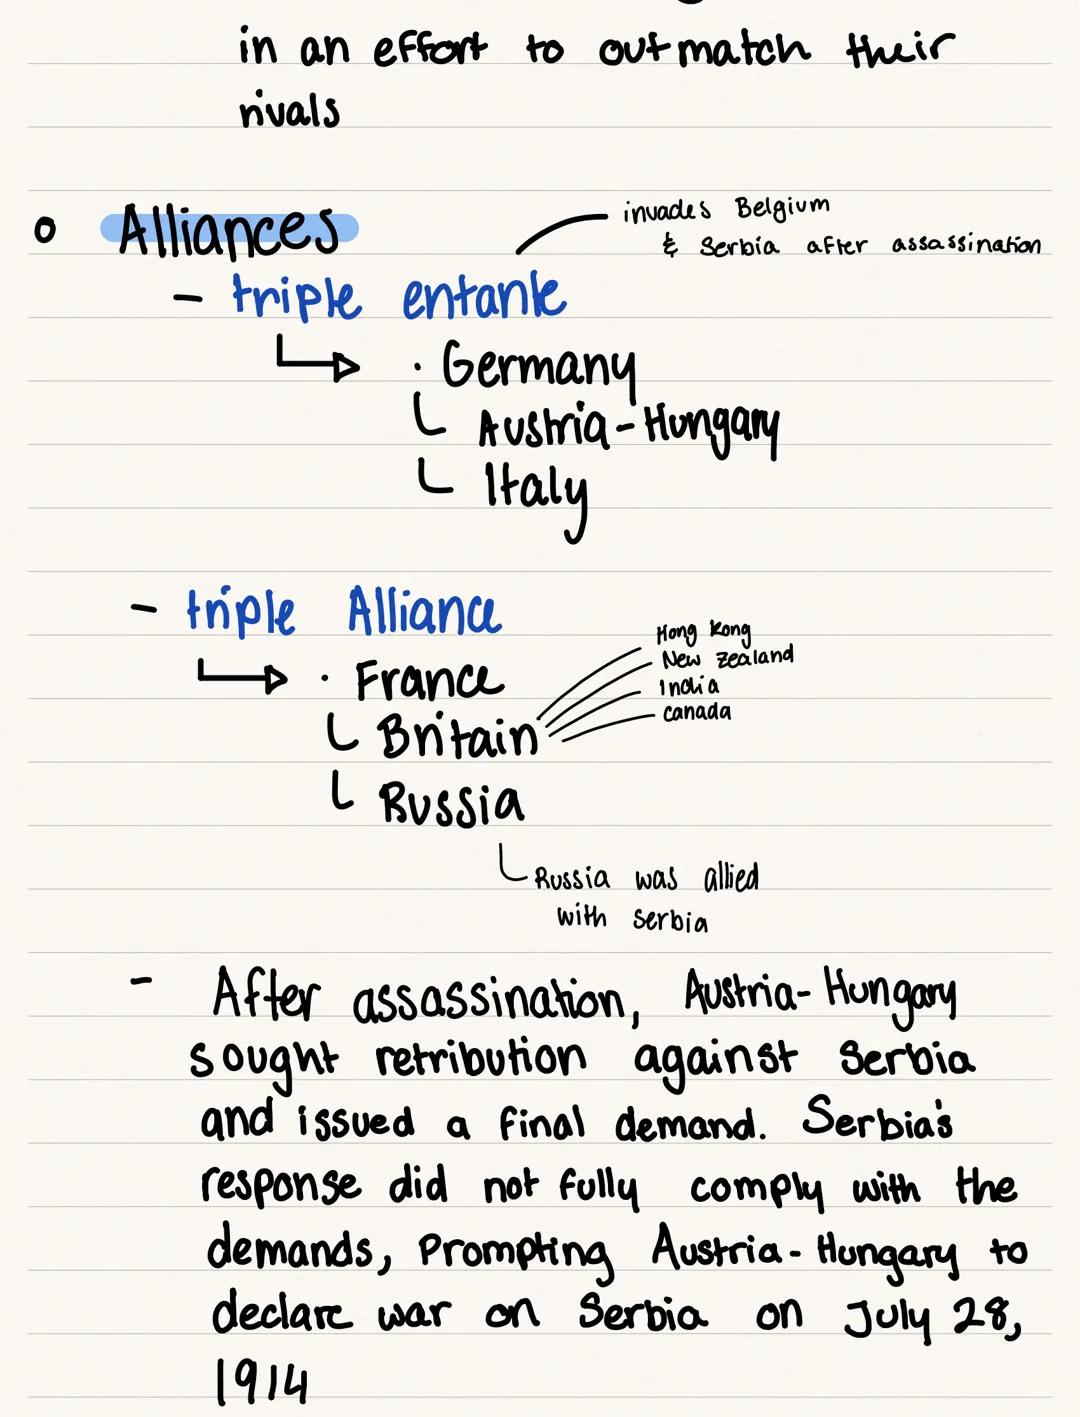 in an effort to outmatch their
rivals
Alliances
invades Belgium
& Serbia after assassination
- triple entante
· Germany
Austria-Hungary
Italy
- triple Alliance
· France
Britain
Hong Kong
New Zealand
India
Canada
Russia
Russia was allied
with Serbia
- After assassination, Austria-Hungary
sought retribution against Serbia
and issued a final demand. Serbia's
response did not fully comply with the
demands, Prompting Austria-Hungary to
declare war on Serbia on July 28,
1914